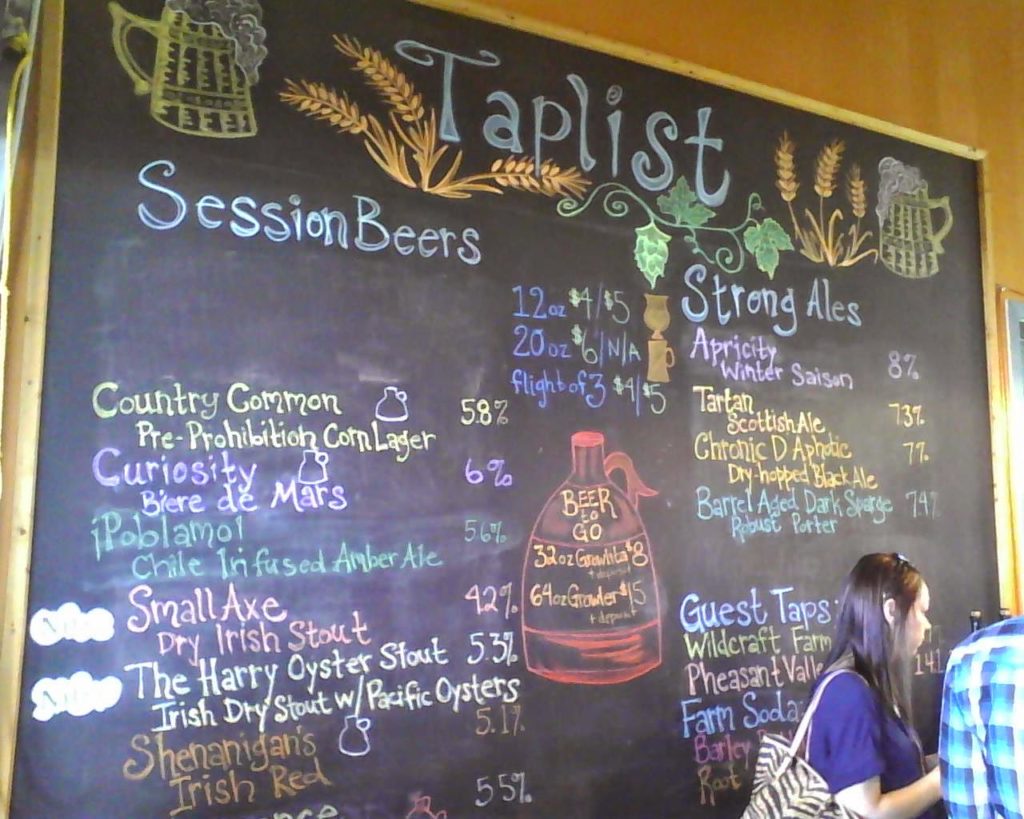 Taplist
Session Beers
12oz $4/$5
20oz $6/N/A
flight of 3 $4/$5
Country Common 5.8%
Pre-Prohibition Corn Lager
Curiosity 6%
Biere de Mars
¡Poblamo! 5.6%
Chile Infused Amber Ale
Small Axe 4.2%
Dry Irish Stout
The Harry Oyster Stout 5.3%
Irish Dry Stout w/Pacific Oysters
5.1%
Shenanigan's
Irish Red
5.5%
BEER
to
GO
32oz Growlita $8
+ deposit
64oz Growler $15
+ deposit
Strong Ales
Apricity 8%
Winter Saison
Tartan 7.3%
Scottish Ale
Chronic D Aphotic 7%
Dry-hopped Black Ale
Barrel Aged Dark Sparge 7.4%
Robust Porter
Guest Taps:
Wildcraft Farm
Pheasant Valle
Farm Soda
Barley
Root